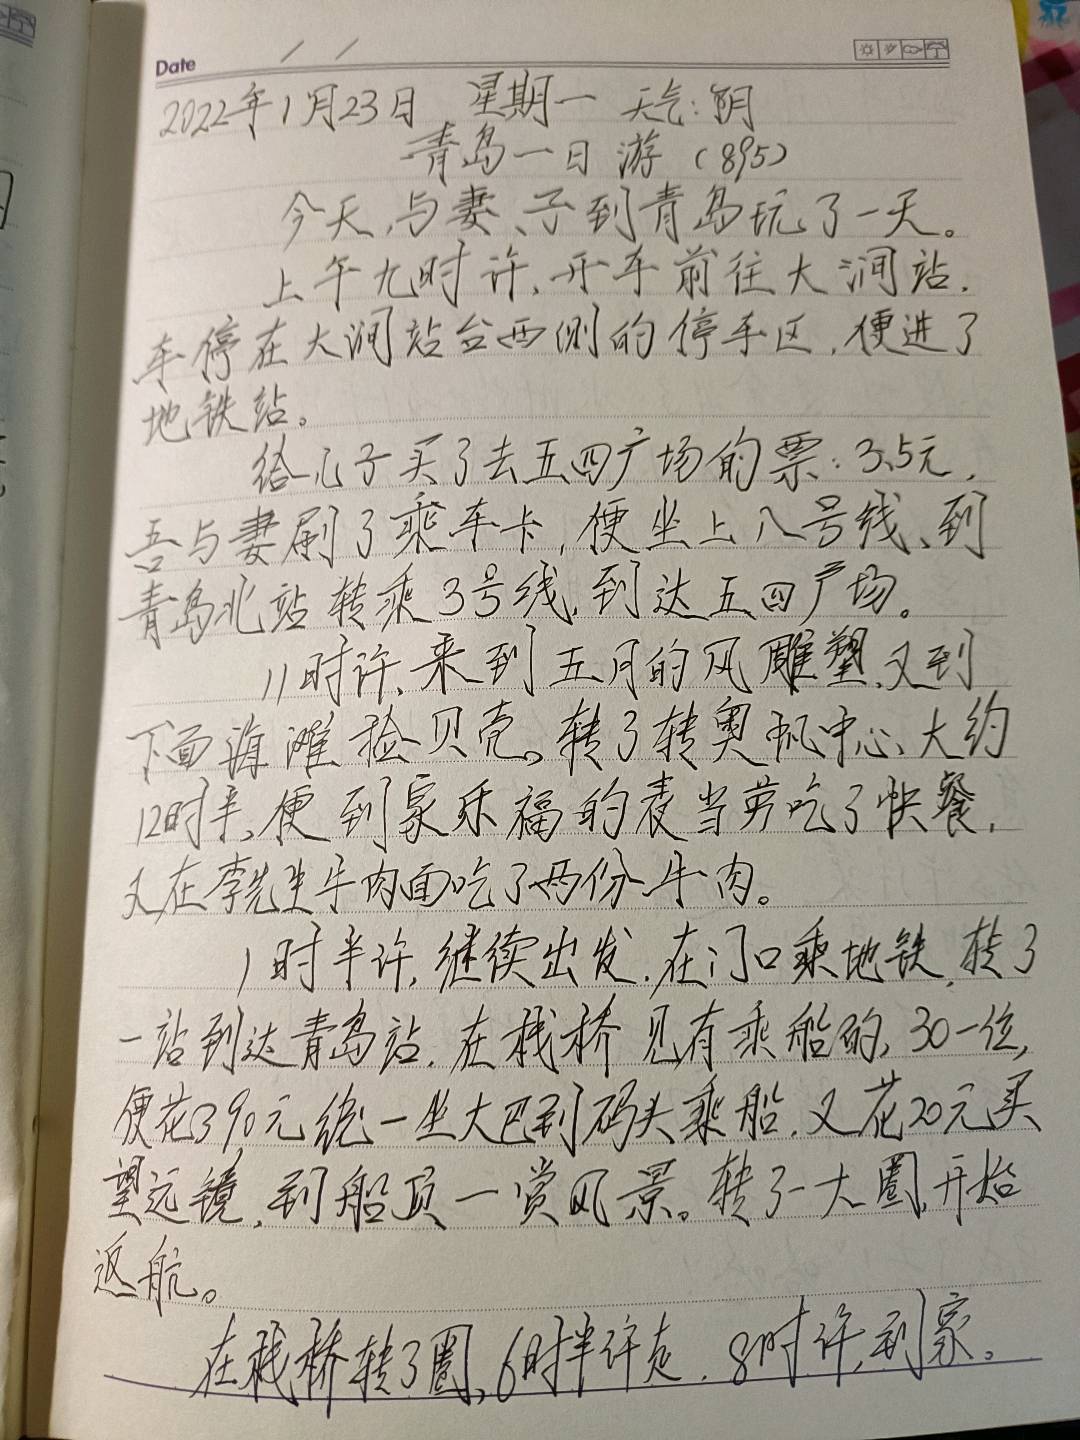 Date / /
2022年1月23日 星期一 天气:阴
青岛一日游(895)
今天,与妻、子到青岛玩了一天。
上午九时许,开车前往大涧站,
车停在大涧站台西侧的停车区,便进了
地铁站。
给心子买了去五四广场的票:3.5元,
吾与妻刷了乘车卡,便坐上八号线、到
青岛北站转乘3号线,到达五四广场。
11时许,来到五月的风雕塑,又到
下面海滩捡贝壳。转了转奥帆中心、大约
12时半,便到家乐福的麦当劳吃了快餐,
又在李先生牛肉面吃了两份牛肉。
1时半许,继续出发,在门口乘地铁,转了
一站到达青岛站,在栈桥见有乘船的,30一位,
便花390元统一坐大巴到码头乘船,又花20元买
望远镜,到船顶一赏风景。转了一大圈,开始
返航。
在栈桥转了圈,6时半许走,8时许,到家。